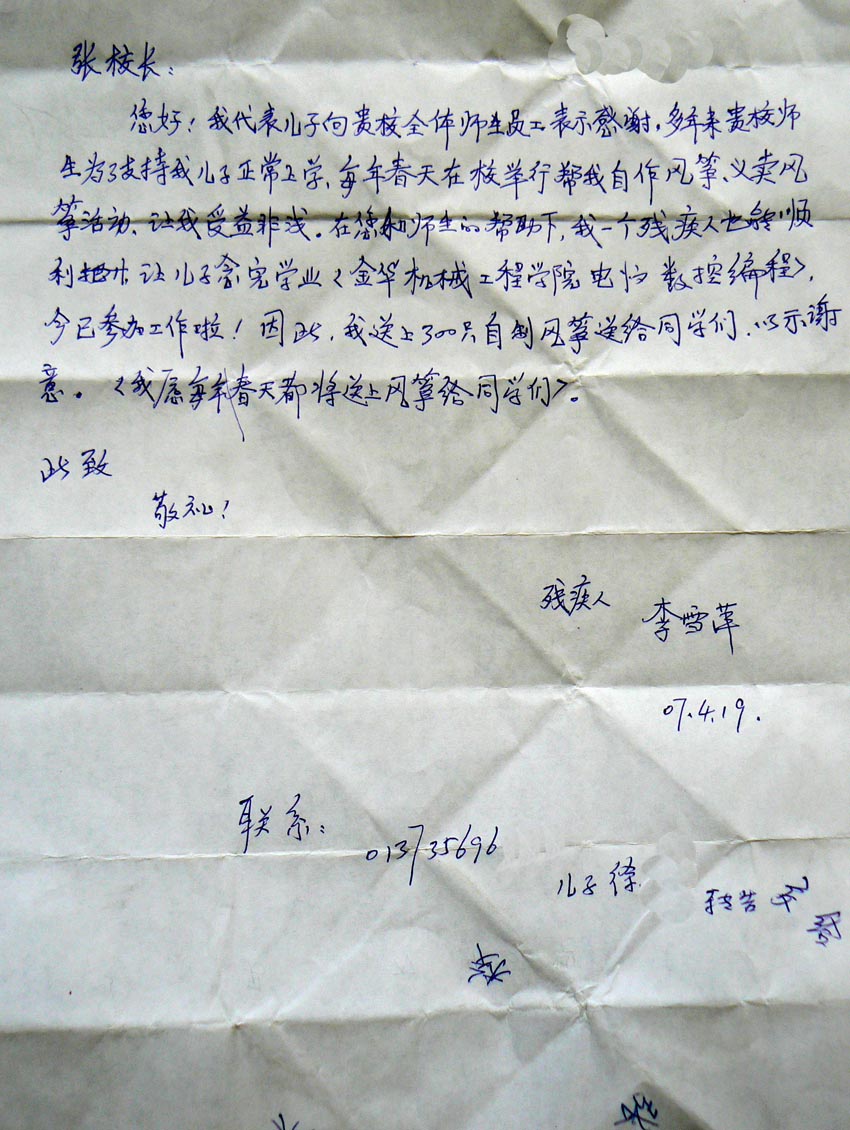 张校长：
您好！我代表儿子向贵校全体师生员工表示感谢，多年来贵校师
生为了支持我儿子正常上学，每年春天在校举行帮我自作风筝、义卖风
筝活动、让我受益非浅。在您和师生的帮助下，我一个残疾人也能顺
利把 让儿子念完学业《金华机械工程学院电 数控编程》，
今已参加工作啦！因此，我送上300只自制风筝送给同学们、以示谢
意。《我愿每年春天都将送上风筝给同学们》。
此致
敬礼！
残疾人 李雪萍
07.4.19.
联系：
013735696
儿子徐
转告